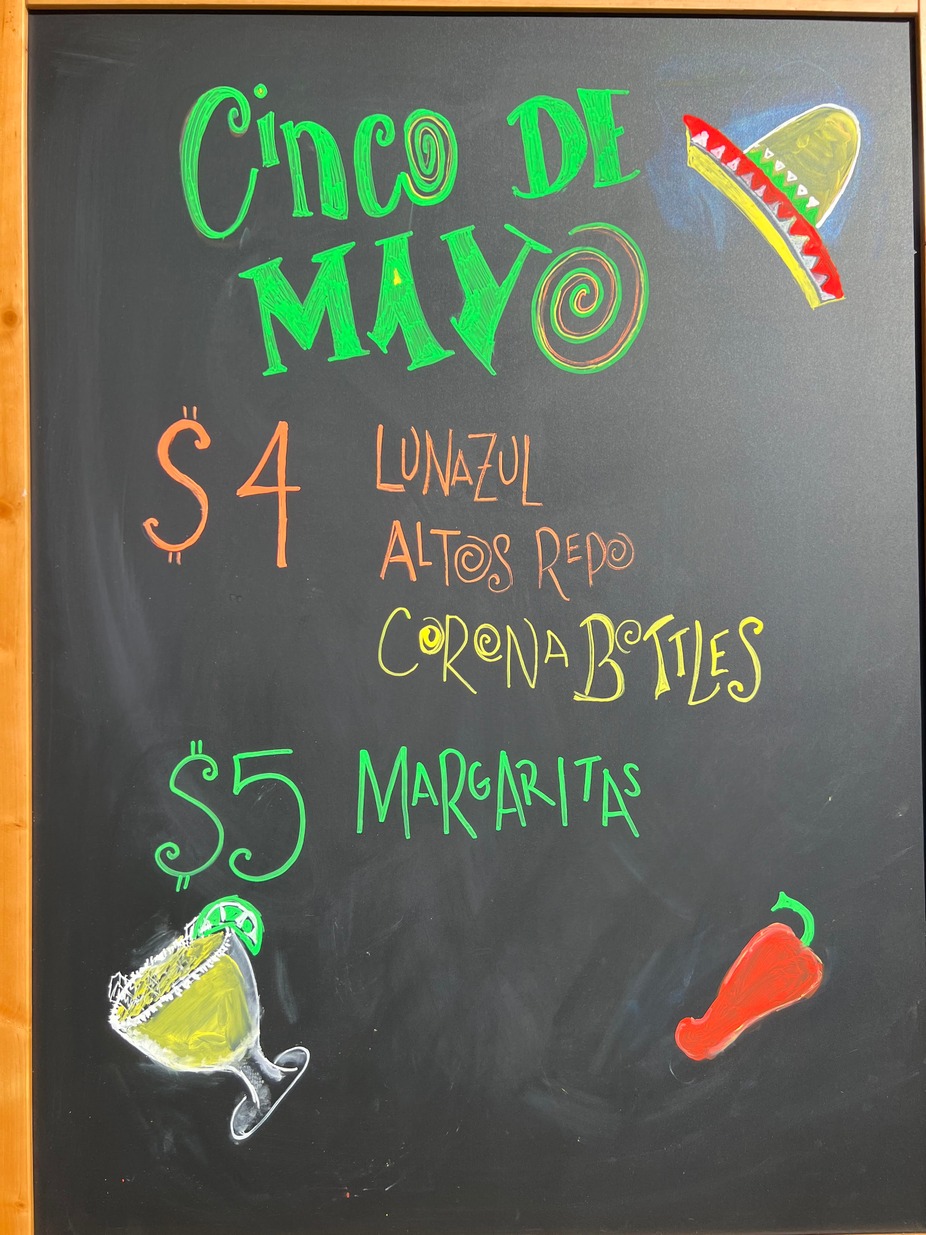 Cinco DE
MAYO
$4 LUNAZUL
ALTOS REPO
CORONA BOTTLES
$5 MARGARITAS